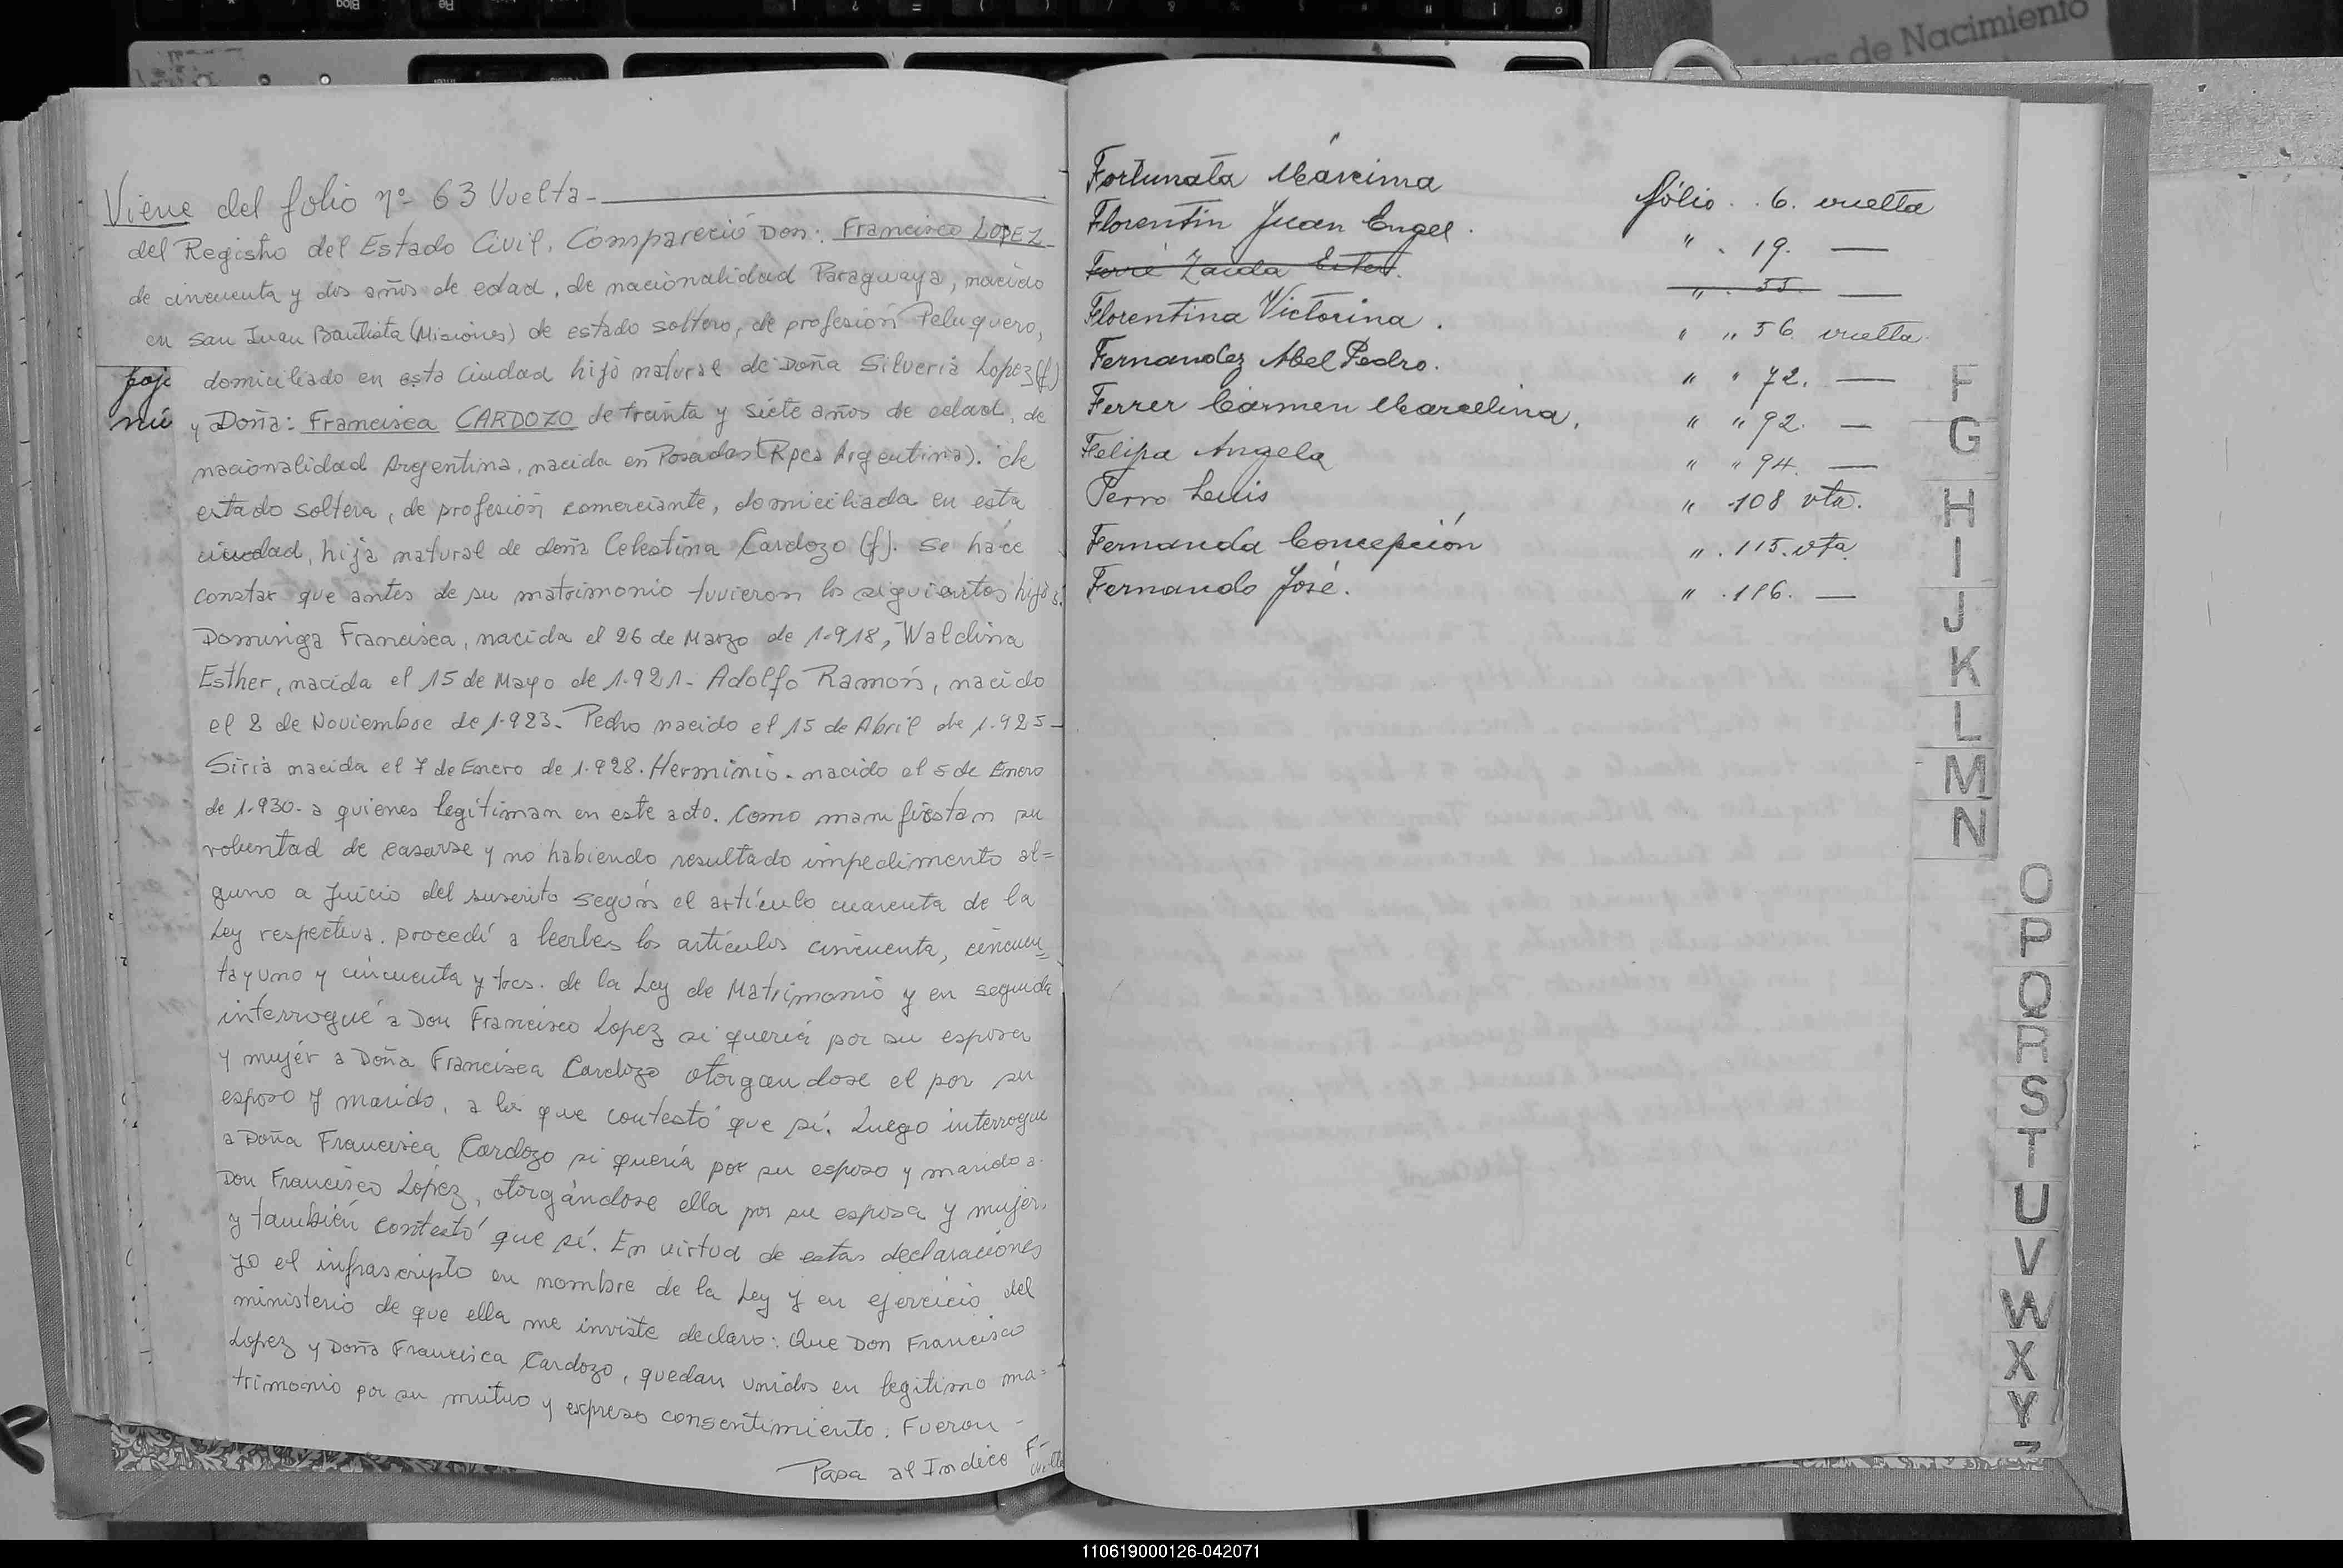 Actas de Nacimiento
Viene del folio nº 63 Vuelta-
del Registro del Estado Civil. Compareció Don: Francisco LOPEZ
de cincuenta y dos años de edad, de nacionalidad Paraguaya, nacido
en San Juan Bautista (Misiones) de estado soltero, de profesión Peluquero,
domiciliado en esta ciudad hijo natural de Doña Silveria Lopez (f)
y Doña: Francisca CARDOZO de treinta y siete años de edad, de
nacionalidad Argentina, nacida en Posadas (Rpca Argentina). de
estado soltera, de profesión comerciante, domiciliada en esta
ciudad, hija natural de doña Celestina Cardozo (f). Se hace
constar que antes de su matrimonio tuvieron los siguientes hijos:
Dominga Francisca, nacida el 26 de Marzo de 1.918, Waldina
Esther, nacida el 15 de Mayo de 1.921- Adolfo Ramón, nacido
el 8 de Noviembre de 1.923- Pedro nacido el 15 de Abril de 1.925-
Siria nacida el 7 de Enero de 1.928. Herminio- nacido el 5 de Enero
de 1.930- a quienes legitiman en este acto. Como manifiestan su
voluntad de casarse y no habiendo resultado impedimento al=
guno a juicio del suscrito según el artículo cuarenta de la
Ley respectiva. procedí a leerles los artículos cincuenta, cincuen=
tayuno y cincuenta y tres. de la Ley de Matrimonio y en seguida
interrogué a Don Francisco Lopez si quería por su esposa
y mujer a Doña Francisca Cardozo otorgandose el por su
esposo y marido, a lo que contestó que sí. Luego interrogue
a Doña Francisca Cardozo si quería por su esposo y marido a
Don Francisco López, otorgándose ella por su esposa y mujer,
y también contestó que sí. En virtud de estas declaraciones
yo el infrascripto en nombre de la Ley y en ejercicio del
ministerio de que ella me inviste declaro: Que Don Francisco
Lopez y Doña Francisca Cardozo, quedan unidos en legitimo ma=
trimonio por su mutuo y expreso consentimiento. Fueron -
Pasa al Indice F- Vuelta
Fortunata Márcima fólio . . 6. vuelta
Florentin Juan Engel . " . 19. —
Ferré Zaida Ester. " . 55. —
Florentina Victorina . " " 56. vuelta
Fernandez Abel Pedro. " " 72. —
Ferrer Cármen Marcelina. " " 92. —
Felipa Angela " " 94. —
Ferro Luis " 108 vta.
Fernanda Concepción " . 115. vta.
Fernando José. " . 116. —
F
G
H
I
J
K
L
M
N
O
P
Q
R
S
T
U
V
W
X
Y
Z
110619000126-042071